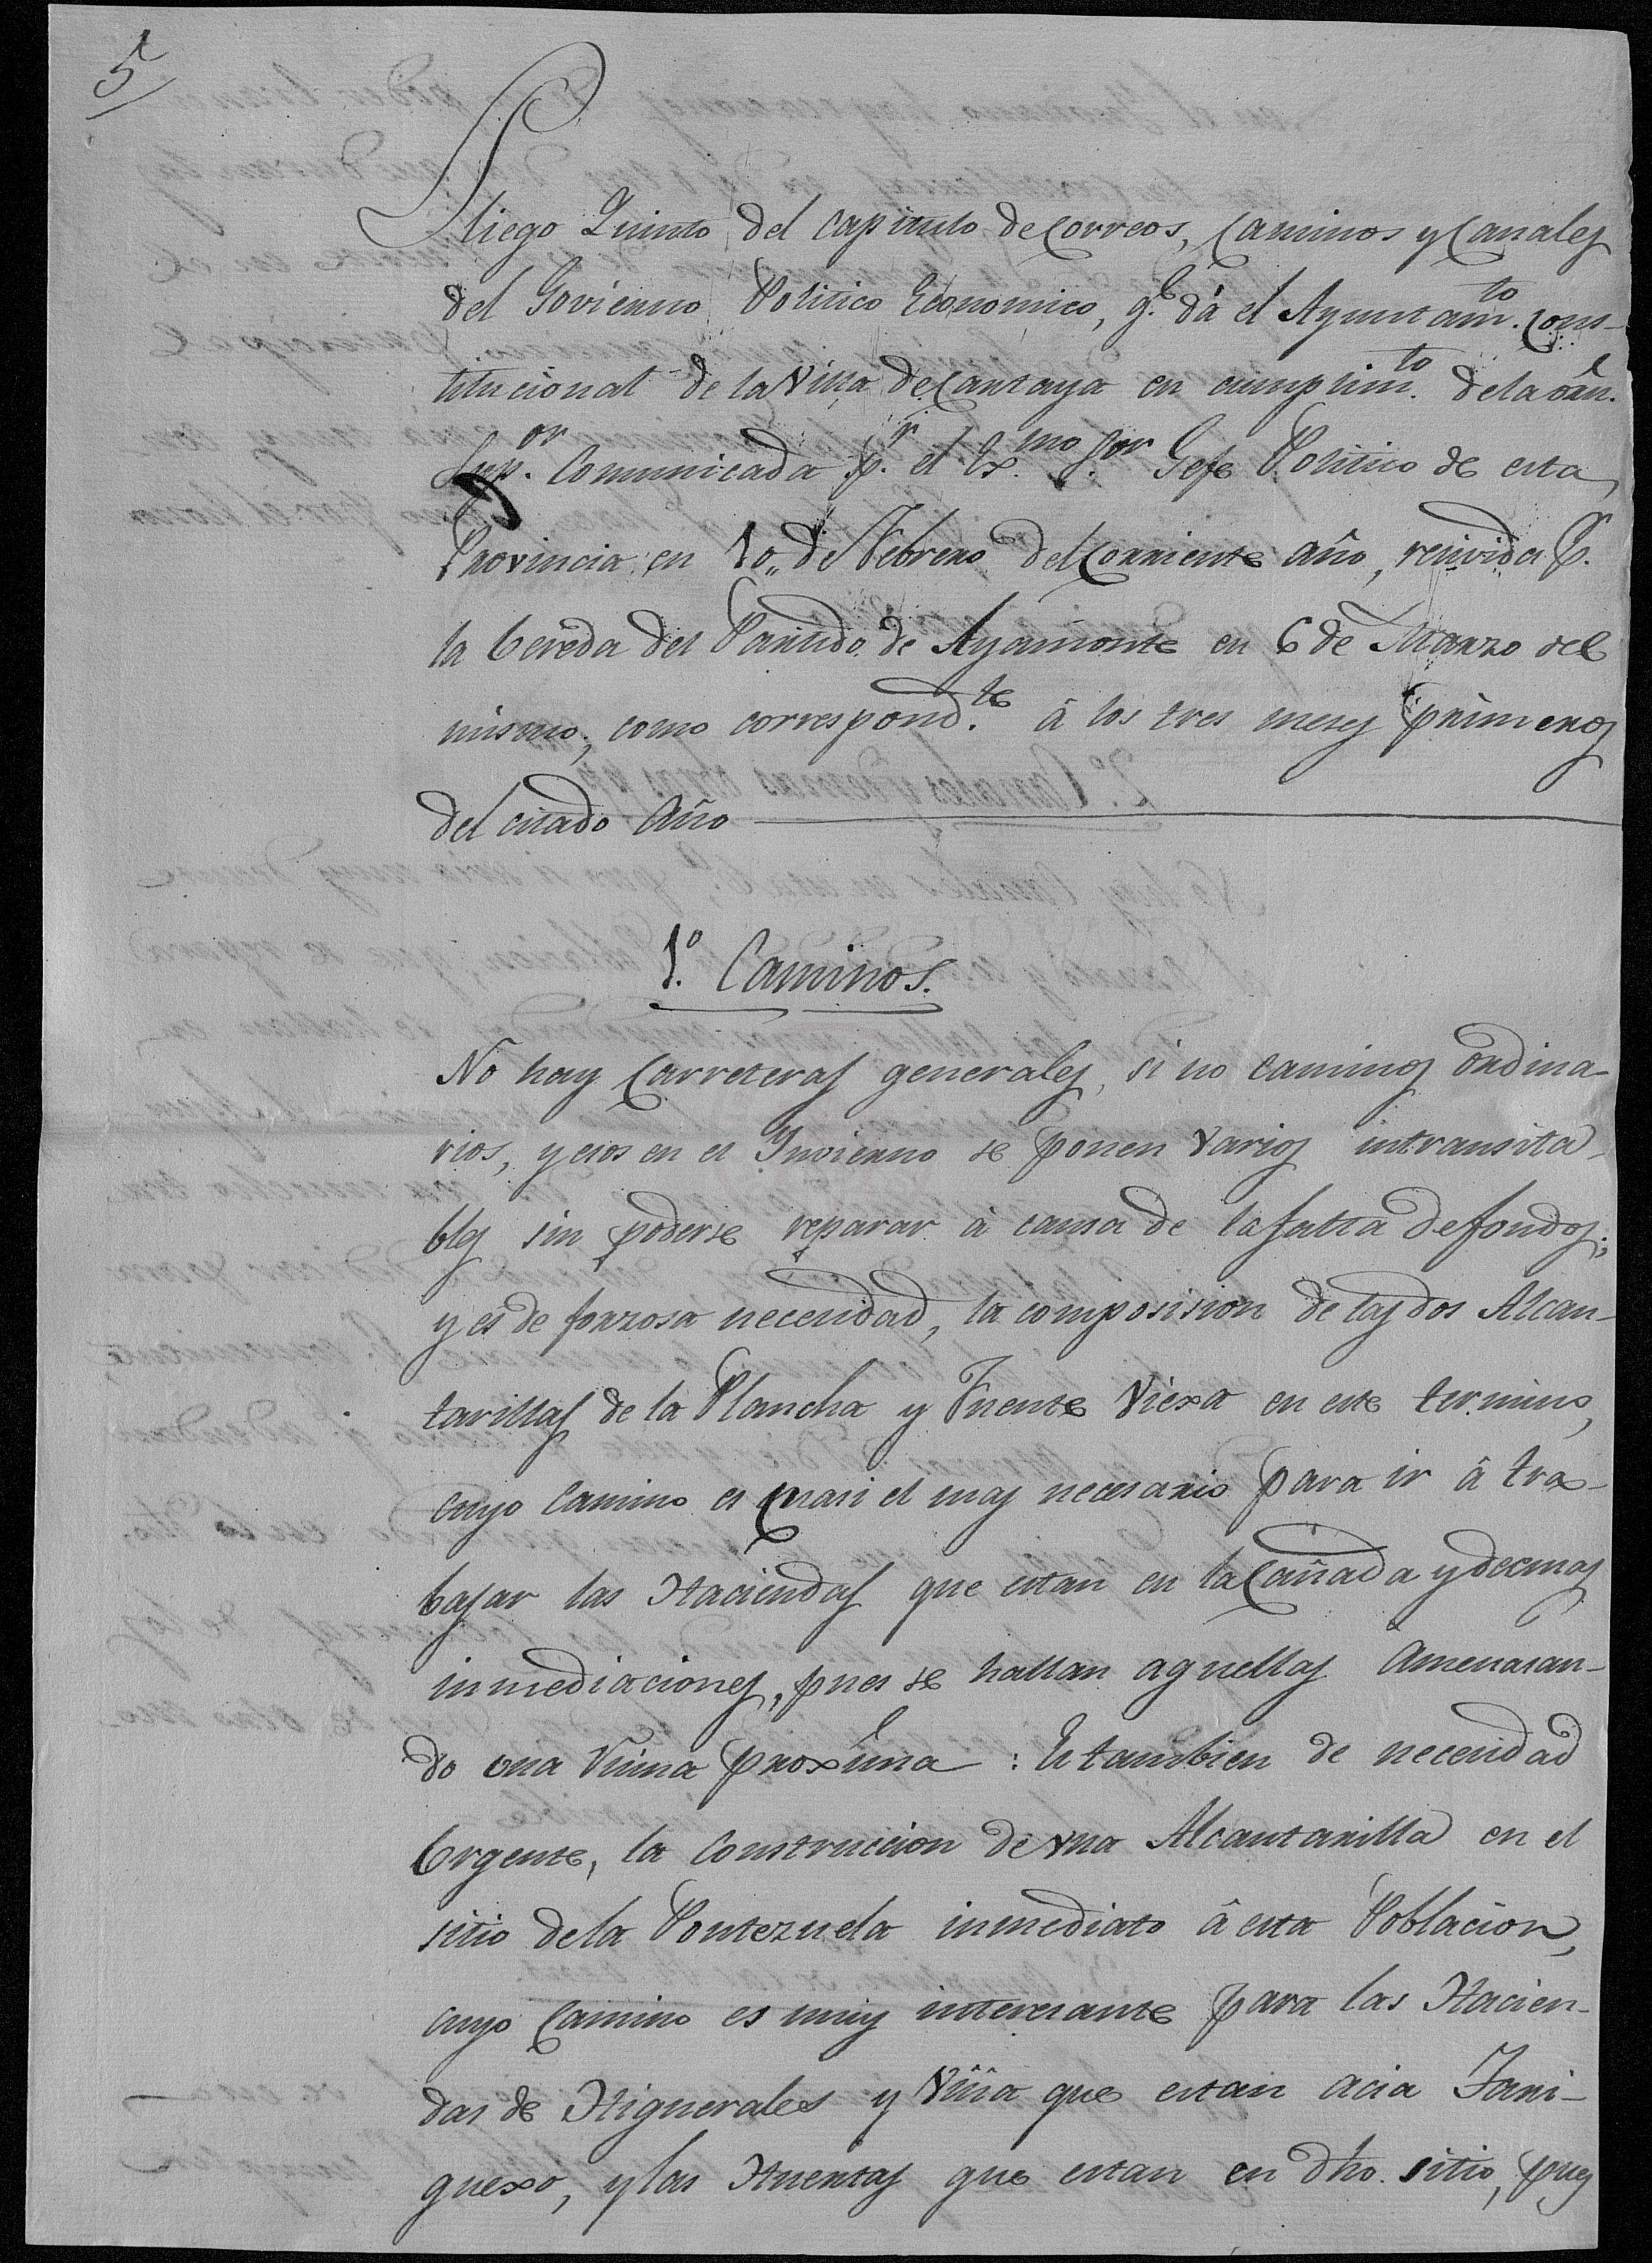 5
Pliego Quinto del capitulo de Correos, Caminos y Canales
del Govierno Politico Economico, q.e dá el Ayuntam.to Cons-
titucional de la Villa de Cartaya en cumplim.to de la orn.
Sup.or Comunicada p.r el Ex.mo S.or Gefe Politico de esta
Provincia en 10,, de Febrero del Corriente año, recivida p.
la bereda del Partido de Ayamonte en 6 de Marzo del
mismo, como correspond.te â los tres meses primeros
del citado Año
1.º Caminos.
No hay Carreteras generales, si no caminos ordina-
rios, y esos en el Invierno se ponen varios intransita-
bles sin poderse reparar à causa de la falta de fondos;
y es de forzosa necesidad, la composision de las dos Alcan-
tarillas de la Plancha y Fuente Viexa en este termino,
cuyo Camino es Quasi el mas necesario para ir â tra-
bajar las Haciendas que estan en la Cañada y demas
inmediaciones, pues se hallan aquellas Amenasan-
do una ruina proxîma : Es tambien de necesidad
Urgente, la Construccion de una Alcantarilla en el
sitio de la Pontezuela inmediato â esta Poblacion,
cuyo Camino es muy interesante para las Hacien-
das de Higuerales y Viña que estan acia
y las Huertas que estan en dho. sitio, pues